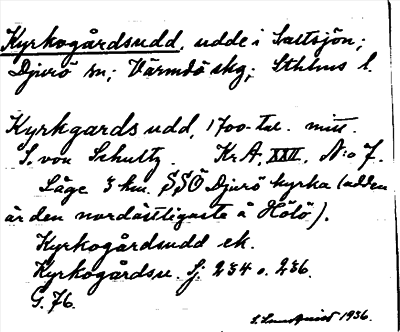 Kyrkogårdsudd, udde i Saltsjön;
Djurö sn; Värmdö skg; Sthlms l.
Kyrkgards udd, 1700-tal. mitt.
S. von Schultz. Kr A, XXII, N:o 7.
Läge 3 km. SSÖ Djurö kyrka (udden
är den nordöstligaste å Hölö).
Kyrkogårdsudd ek.
Kyrkogårdsu. Sj. 234 o. 236.
G. 76.
S. Lundqvist 1936.